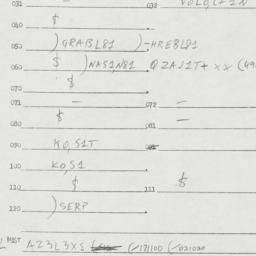 031 032 VOLO,C+1N
040 $
050 )GRABL81 )-HREBL81
060 $ )NAS1N81 QZAJ1T+ xx (49
070 $
071 - 072 -
080 $ 081 -
090 KO,S1T
100 KO,S1
110 $ 111 $
120 )SERP
MST AZ3L3XS (/171100 (/021020